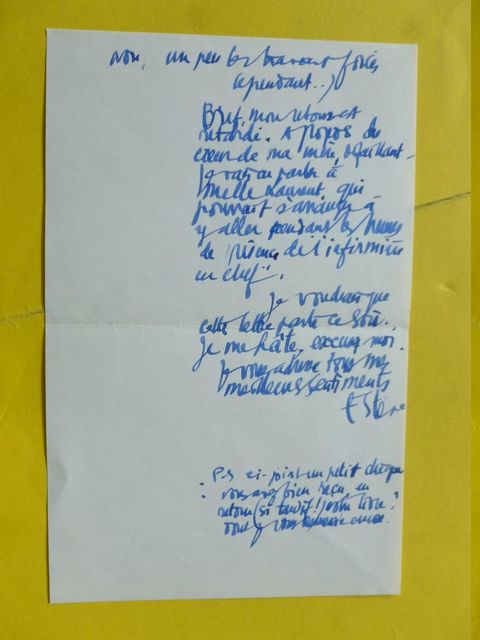 non, un peu les travaux forcés
cependant..)
Bref, mon retour est
retardé. A propos du
cœur de ma mère, défaillant,
parler à
Melle Laurent qui
pourrait s'arranger à
y aller pendant les heures
de présence de l'infirmière
en chef.
Je voudrais que
cette lettre parte ce soir.
Je me hâte, excusez moi.
Je vous adresse tous mes
meilleurs sentiments
P.S ci-joint un petit chèque
: vous avez bien reçu, en
retour (si tardif!) votre livre?